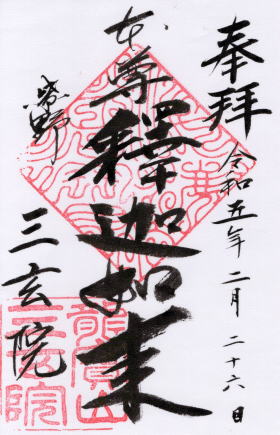 奉拝
令和五年二月二十六日
本尊
釋迦如来
紫野
三玄院